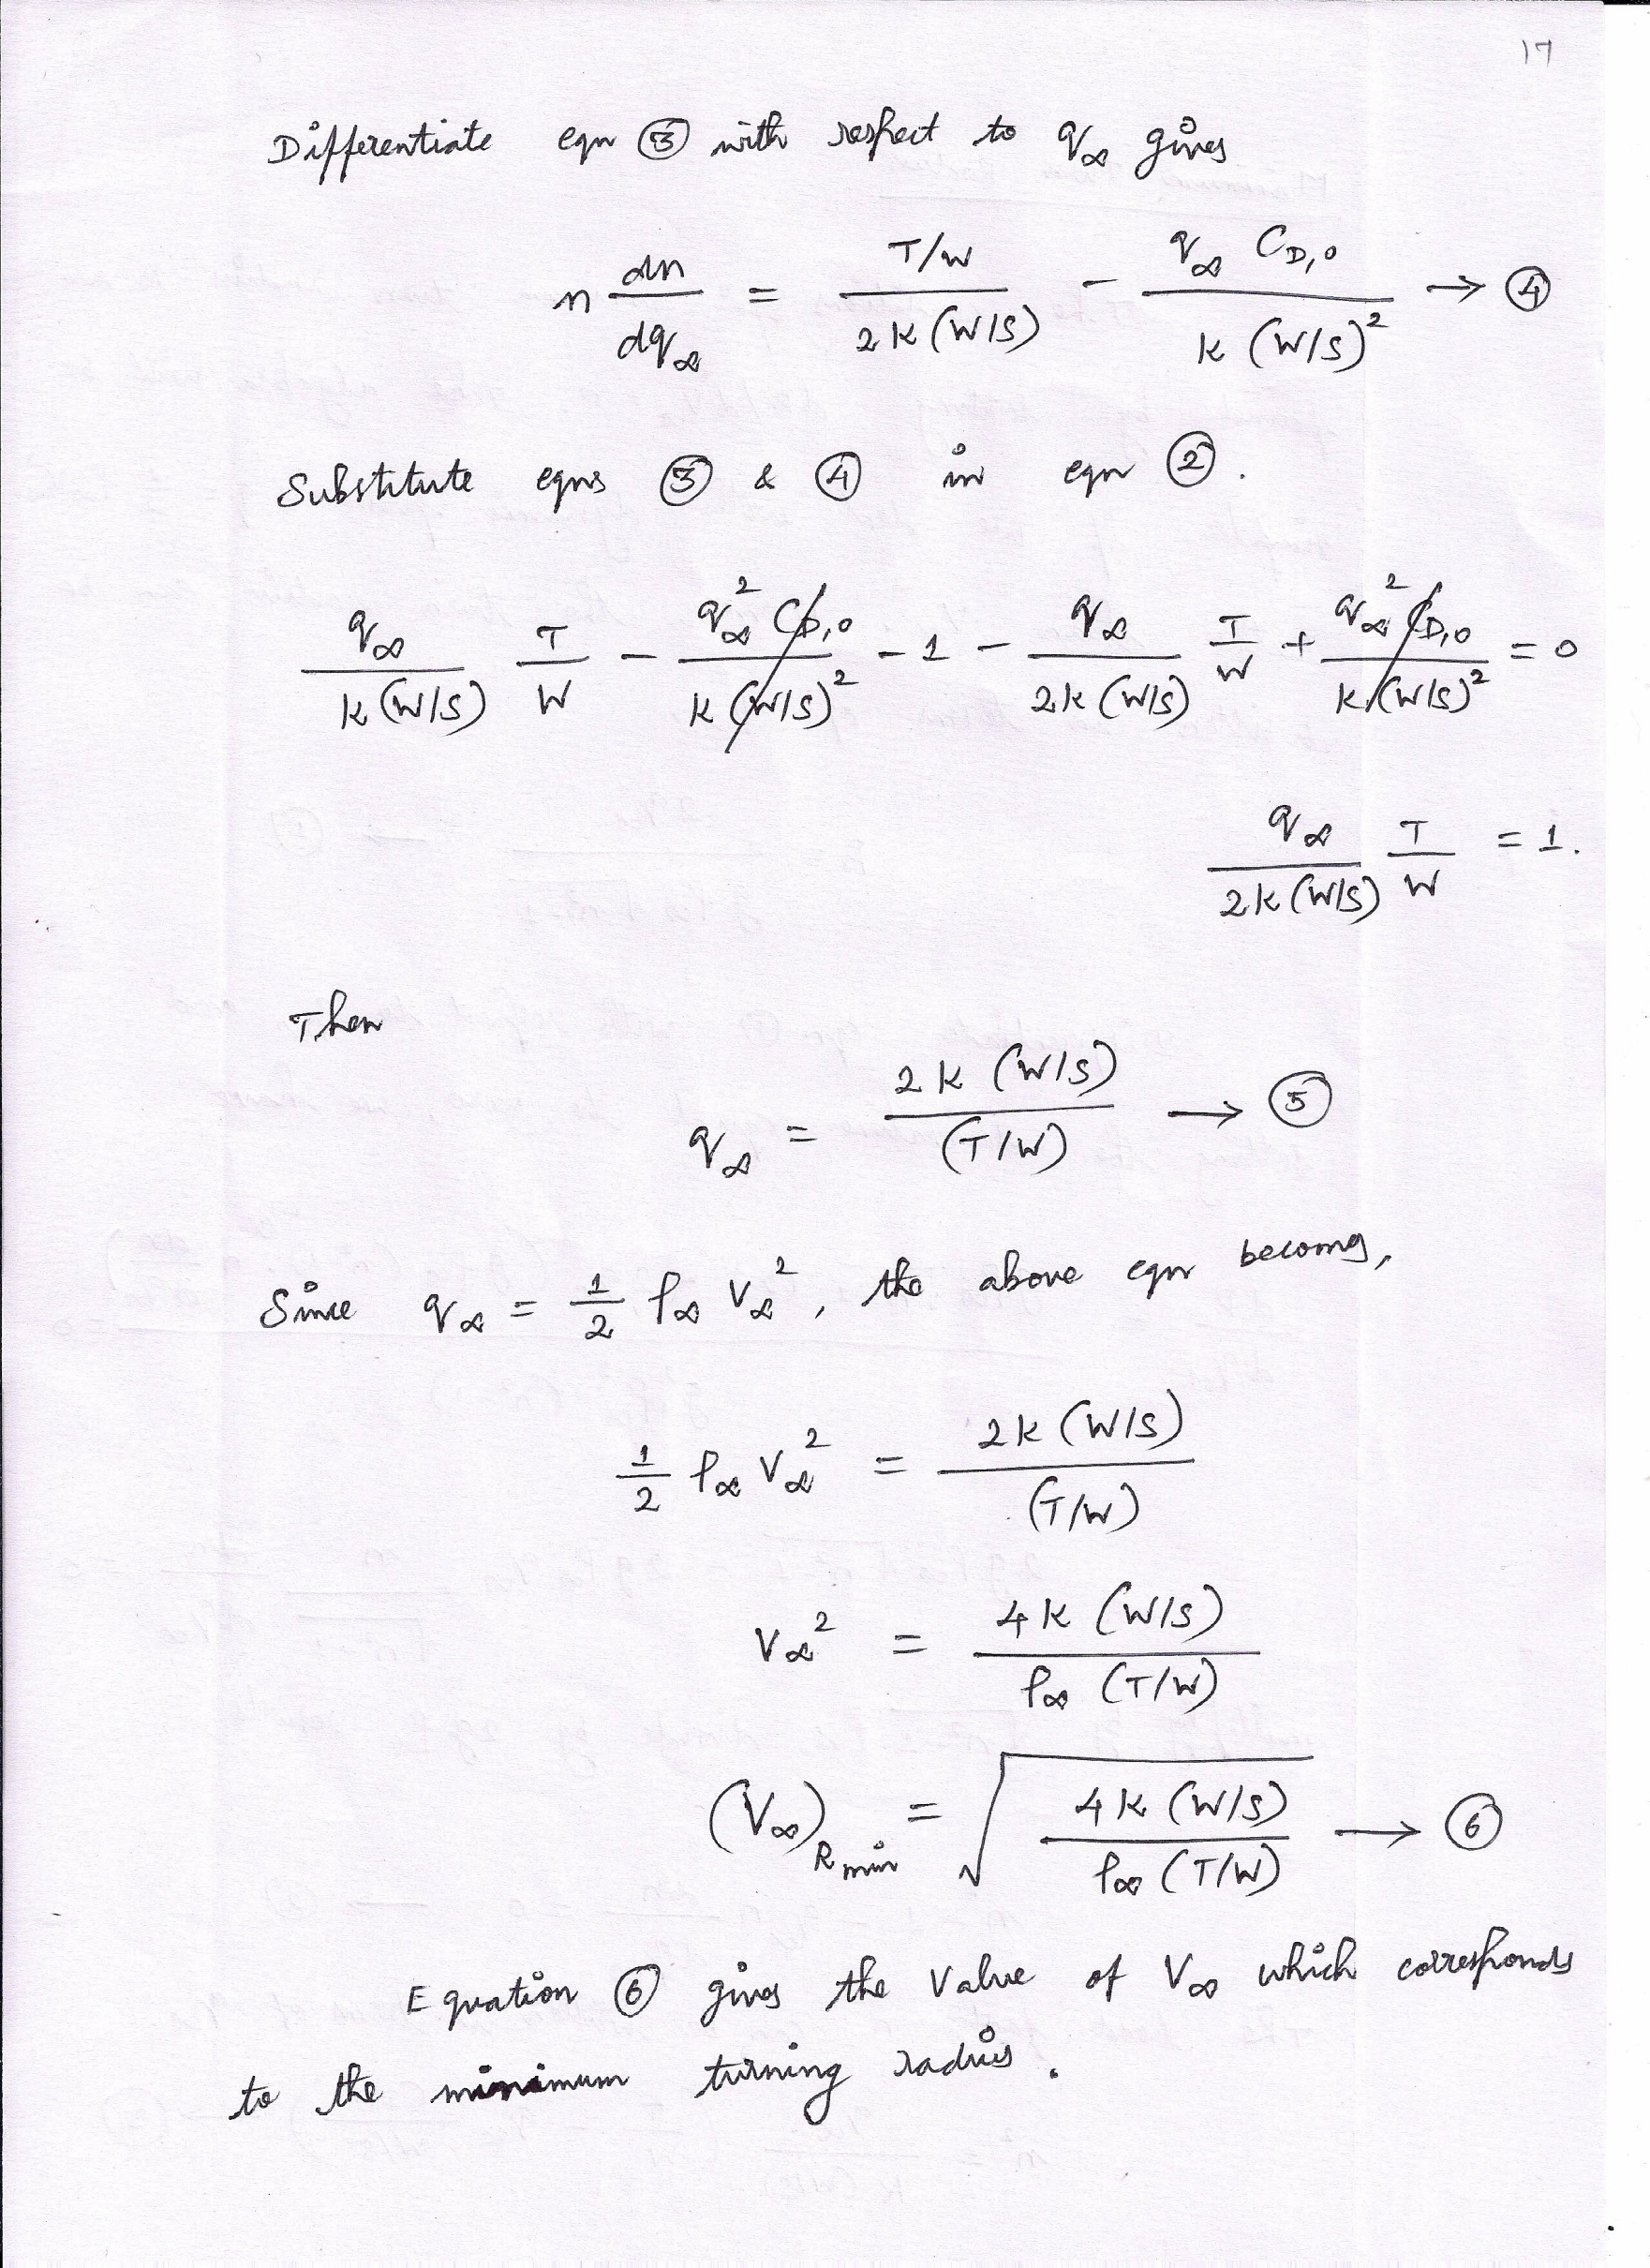 17
Differentiate eqn ③ with respect to q∞ gives
n dn/dq∞ = (T/W)/(2K(W/S)) - (q∞ C_D,0)/(K(W/S)²) → ④
Substitute eqns ③ & ④ in eqn ②.
q∞/(K(W/S)) T/W - (q∞² C_D,0)/(K(W/S)²) - 1 - q∞/(2K(W/S)) T/W + (q∞² C_D,0)/(K(W/S)²) = 0
q∞/(2K(W/S)) T/W = 1.
Then
q∞ = 2K(W/S)/(T/W) → ⑤
Since q∞ = 1/2 ρ∞ V∞², the above eqn becomes,
1/2 ρ∞ V∞² = 2K(W/S)/(T/W)
V∞² = 4K(W/S)/(ρ∞(T/W))
(V∞)R min = √(4K(W/S)/(ρ∞(T/W))) → ⑥
Equation ⑥ gives the value of V∞ which corresponds
to the minimum turning radius.